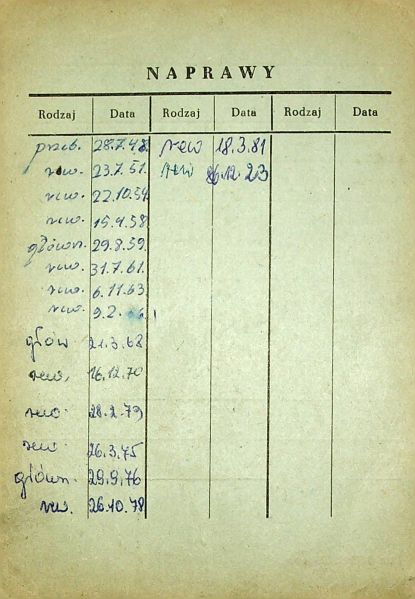 NAPRAWY
Rodzaj Data Rodzaj Data Rodzaj Data
przeb. 28.7.48 rew 18.3.81
rew. 23.7.51. rew 16.12.23
rew. 22.10.54
rew. 15.4.58
główn. 29.8.59
rew. 31.7.61.
rew. 6.11.63
rew. 9.2.
głów 21.3.68
rew. 16.12.70
rew. 28.2.73
rew. 26.3.75
główn. 29.9.76
rew. 26.10.78